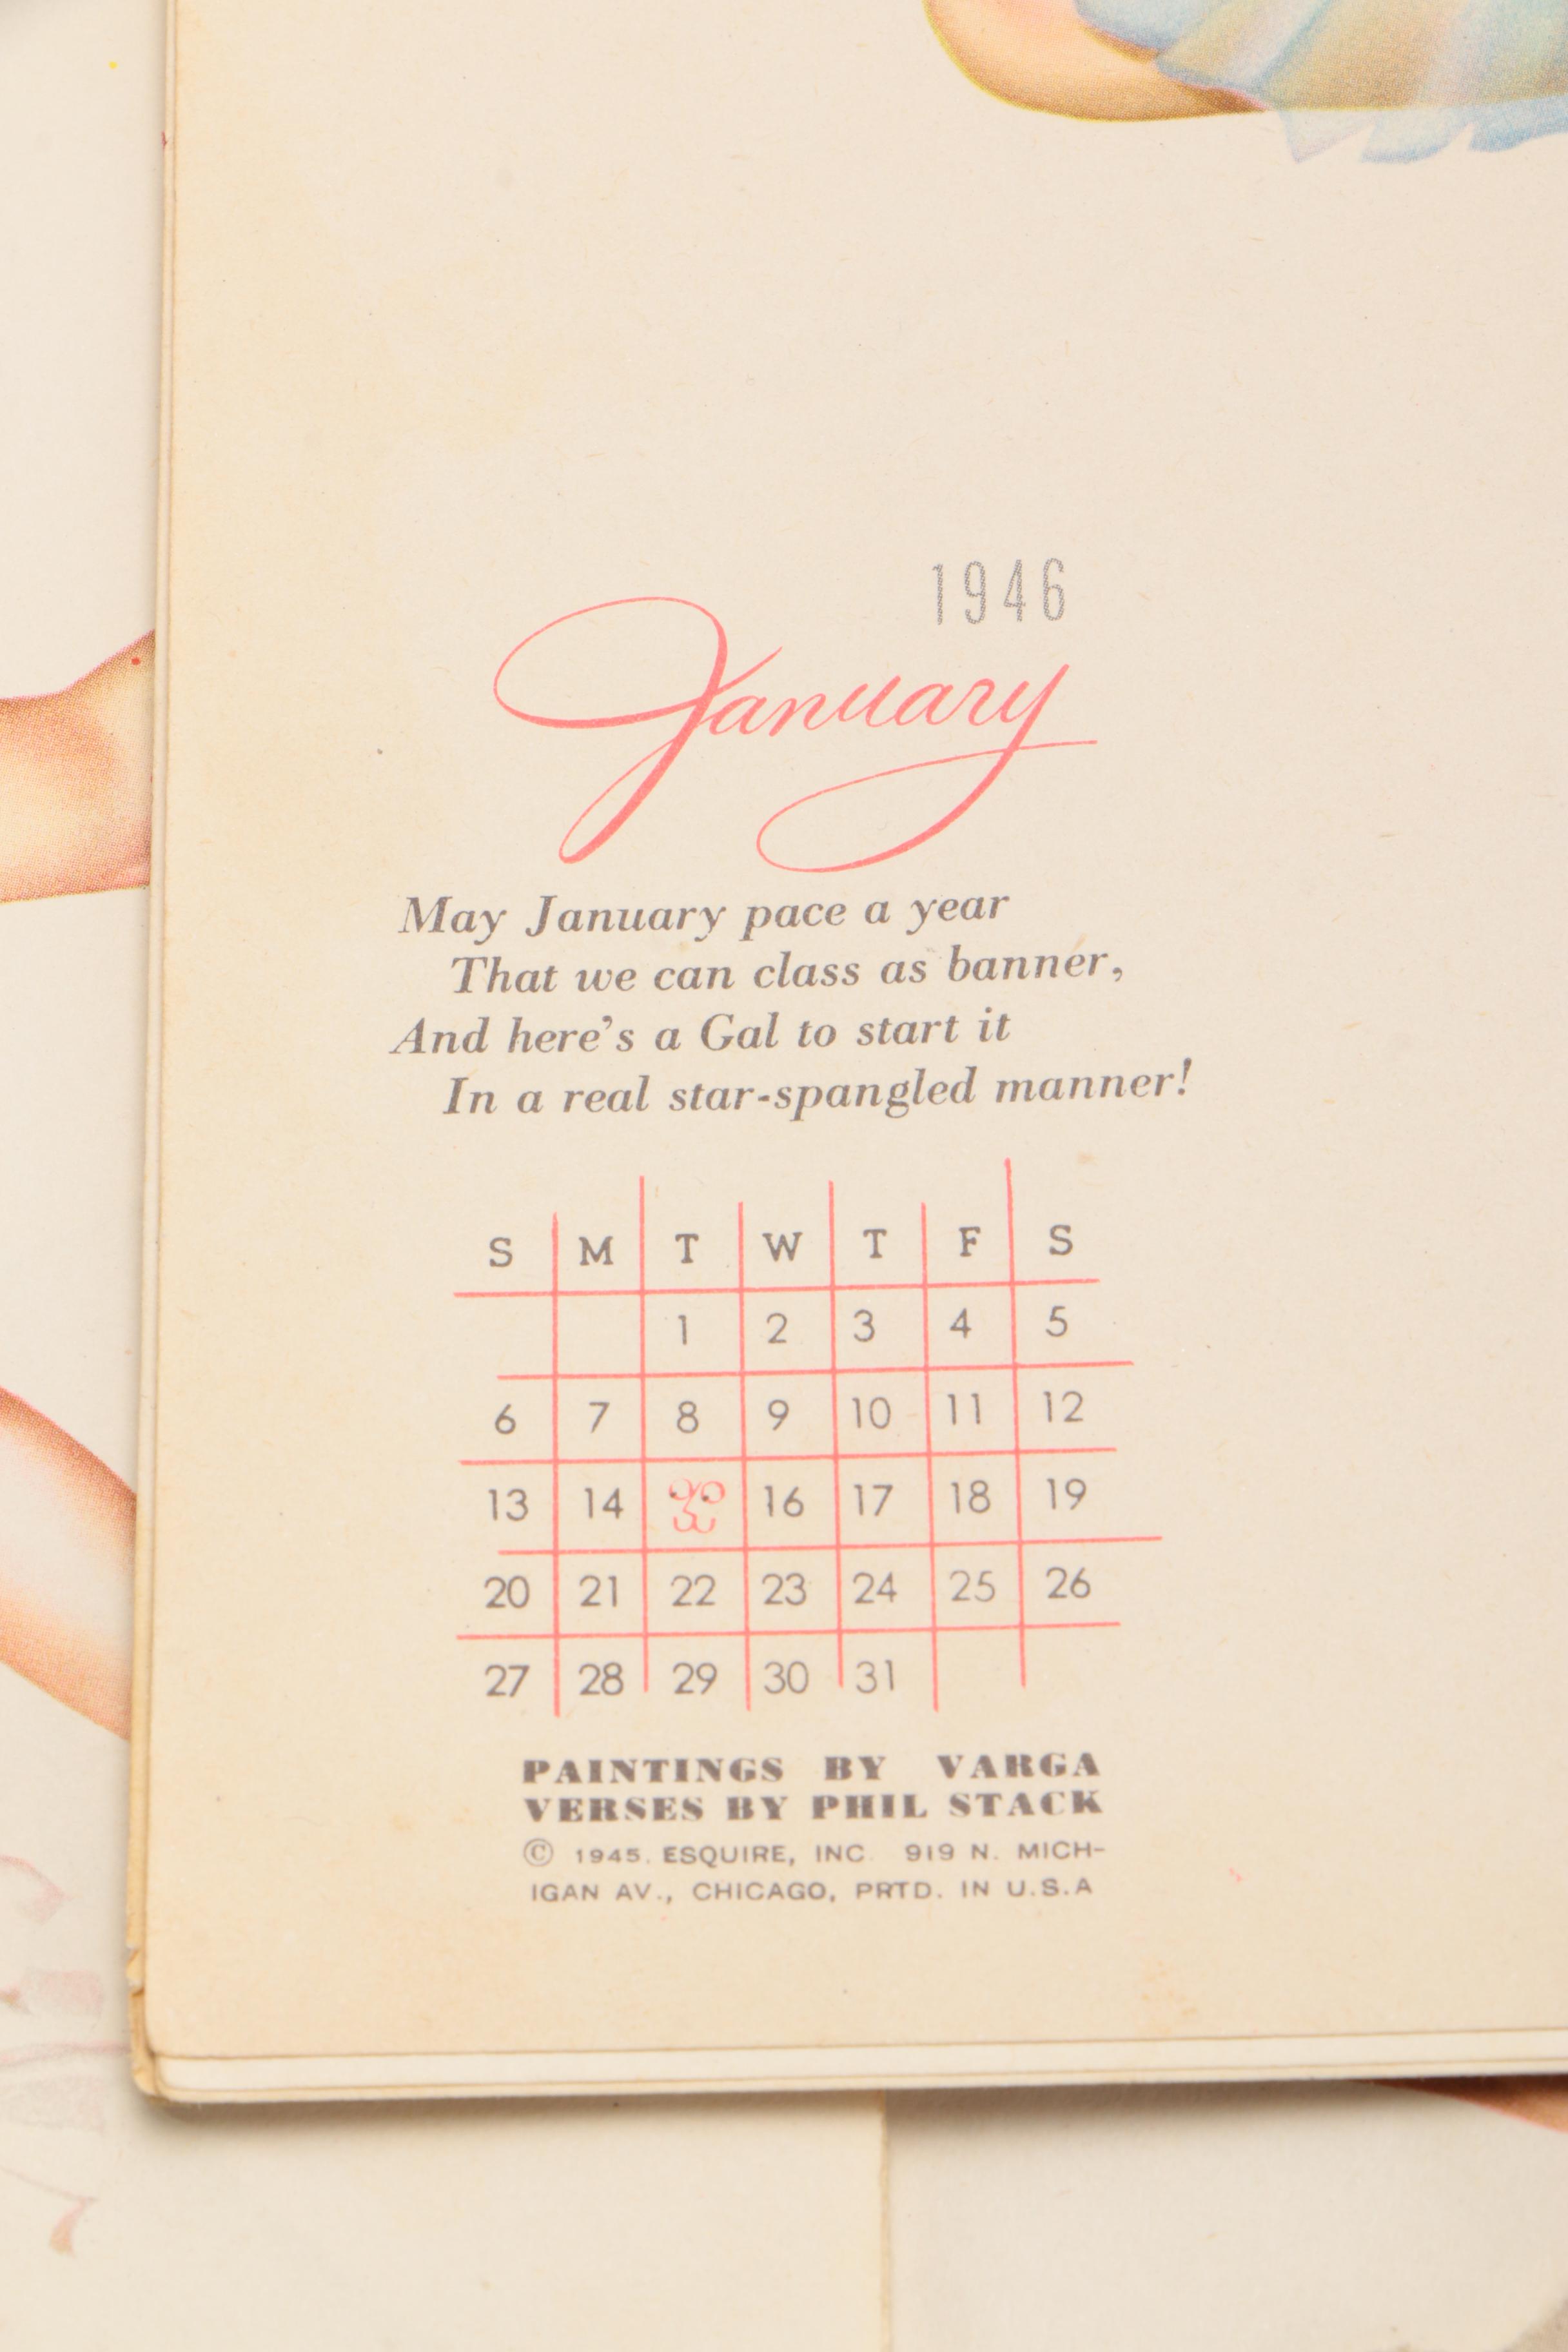 1946
January
May January pace a year
That we can class as banner,
And here's a Gal to start it
In a real star-spangled manner!
S M T W T F S
1 2 3 4 5
6 7 8 9 10 11 12
13 14 16 17 18 19
20 21 22 23 24 25 26
27 28 29 30 31
PAINTINGS BY VARGA
VERSES BY PHIL STACK
© 1945. ESQUIRE, INC. 919 N. MICH-
IGAN AV., CHICAGO, PRTD. IN U.S.A